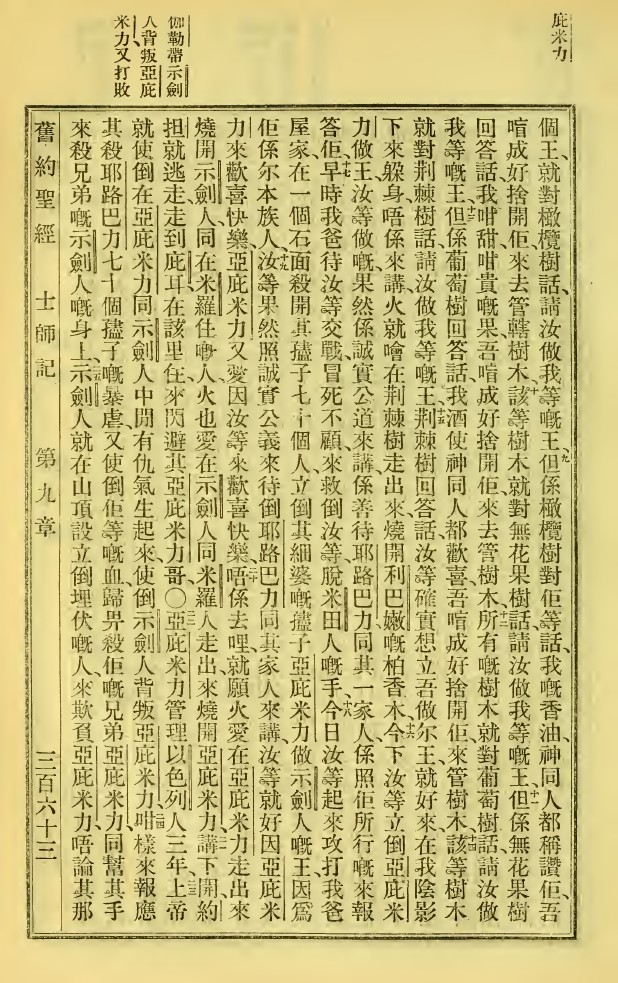 庇米力
伽勒帶示劍
八背叛亞庇
米力又打敗
個王、就對橄欖樹話、請汝做我等嘅王、九但係橄欖樹對佢等話、我嘅香油、神同人都稱讚佢、吾
喑成好捨開佢來去管轄樹木、十該等樹木就對無花果樹話、請汝做我等嘅王、十一但係無花果樹
回答話、我咁甜咁貴嘅果、吾喑成好捨開佢來去管樹木、十二所有嘅樹木就對葡萄樹話、請汝做
我等嘅王、十三但係葡萄樹回答話、我酒使神同人都歡喜、吾喑成好捨開佢來管樹木、十四該等樹木
就對荆棘樹話、請汝做我等嘅王、十五荆棘樹回答話、汝等確實想立吾做尔王、就好來在我陰影
下來躲身、唔係來講、火就噲在荆棘樹走出來、燒開利巴嫩嘅柏香木、十六今下汝等立倒亞庇米
力做王、汝等做嘅、果然係誠實公道來講、係善待耶路巴力同其一家人、係照佢所行嘅來報
答佢、十七早時我爸待汝等交戰、冒死不顧、來救倒汝等脫米田人嘅手、十八今日汝等起來攻打我爸
屋家、在一個石面殺開其孻子七十個人、立倒其細婆嘅孻子亞庇米力、做示劍人嘅王、因爲
佢係尔本族人、十九汝等果然照誠實公義來待倒耶路巴力、同其家人來講、汝等就好因亞庇米
力來歡喜快樂、亞庇米力又愛因汝等來歡喜快樂、二十唔係去哩、就願火愛在亞庇米力走出來
燒開示劍人、同在米羅住人、火也愛在示劍人同米羅人走出來、燒開亞庇米力、二一講下開約
担就逃走、走到庇耳、在該里住、來閃避其亞庇米力哥、〇二二亞庇米力管理以色列人三年、二三上帝
就使倒在亞庇米力同示劍人中閒有仇氣生起來、使倒示劍人背叛亞庇米力、二四咁樣來報應
其殺耶路巴力七十個孻子嘅暴虐、又使倒佢等嘅血、歸畀殺佢嘅兄弟亞庇米力、同幫其手
來殺兄弟嘅示劍人嘅身上、二五示劍人就在山頂設立倒埋伏嘅人、來欺負亞庇米力、唔論其那
舊約聖經 士師記 第九章 三百六十三